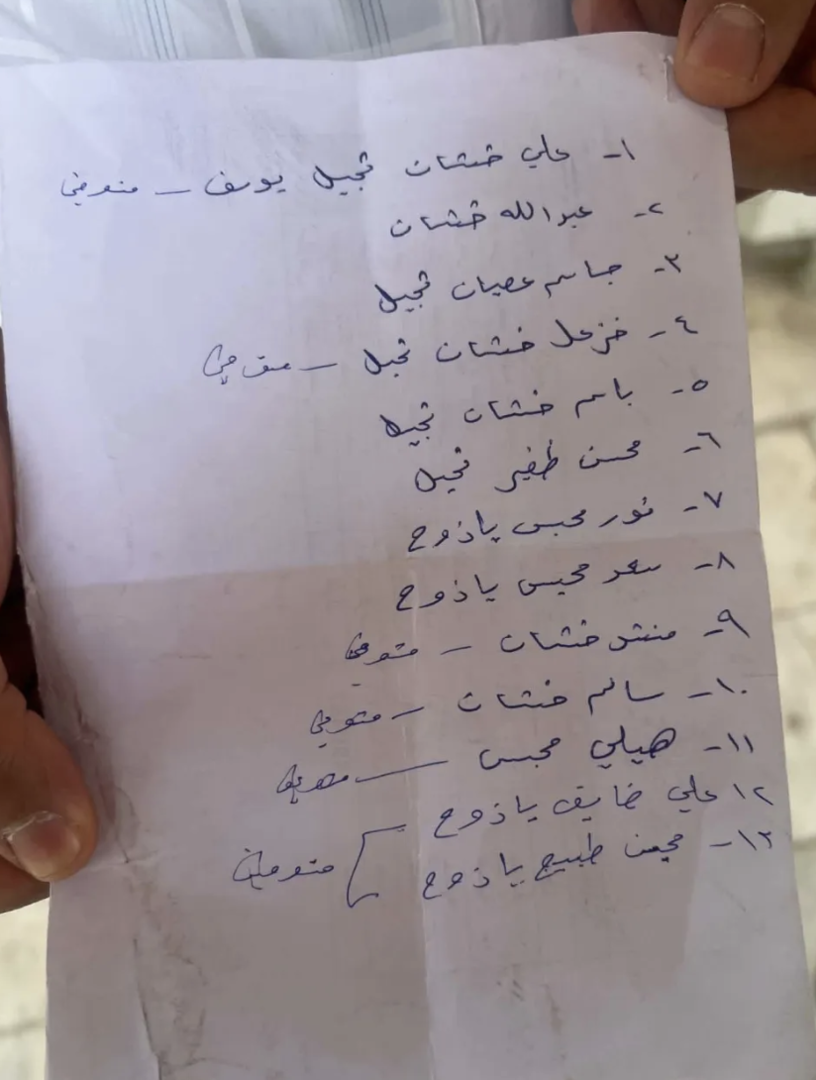 ١- علي خشان ثجيل يوسف - متوفي
٢- عبدالله خشان
٣- جاسم عصيان ثجيل
٤- خزعل خشان ثجيل - متوفي
٥- باسم خشان ثجيل
٦- محسن ظفير ثجيل
٧- نور محيس ياذوح
٨- سعد محيس ياذوح
٩- خشان - متوفي
١٠- سالم خشان - متوفي
١١- هيلي محيس - متوفي
١٢ علي ضايف ياذوح
١٣- طبيج ياذوح ] متوفين